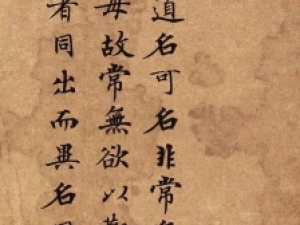 道名可名非常名
毋故常無欲以觀
者同出而異名